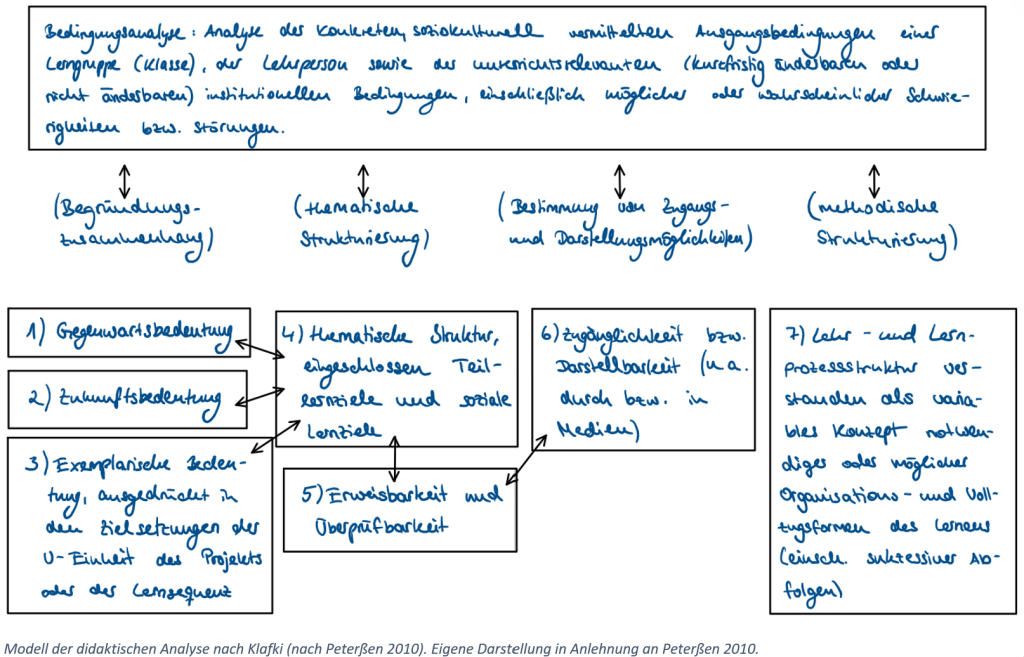 Bedingungsanalyse: Analyse der konkreten, soziokulturell vermittelten Ausgangsbedingungen einer
Lerngruppe (Klasse), der Lehrperson sowie der unterrichtsrelevanten (kurzfristig änderbaren oder
nicht änderbaren) institutionellen Bedingungen, einschließlich möglicher oder wahrscheinlicher Schwie-
rigkeiten bzw. Störungen.
(Begründungs-
zusammenhang)
(thematische
Strukturierung)
(Bestimmung von Zugangs-
und Darstellungsmöglichkeiten)
(methodische
Strukturierung)
1) Gegenwartsbedeutung
2) Zukunftsbedeutung
3) Exemplarische Bedeu-
tung, ausgedrückt in
den Zielsetzungen der
U-Einheit des Projekts
oder der Lernsequenz
4) thematische Struktur,
eingeschlossen Teil-
lernziele und soziale
Lernziele
5) Erweisbarkeit und
Überprüfbarkeit
6) Zugänglichkeit bzw.
Darstellbarkeit (u.a.
durch bzw. in
Medien)
7) Lehr- und Lern-
prozessstruktur ver-
standen als varia-
bles Konzept notwen-
diger oder möglicher
Organisations- und Voll-
zugsformen des Lernens
(einsch. sukzessiver Ab-
folgen)
Modell der didaktischen Analyse nach Klafki (nach Peterßen 2010). Eigene Darstellung in Anlehnung an Peterßen 2010.